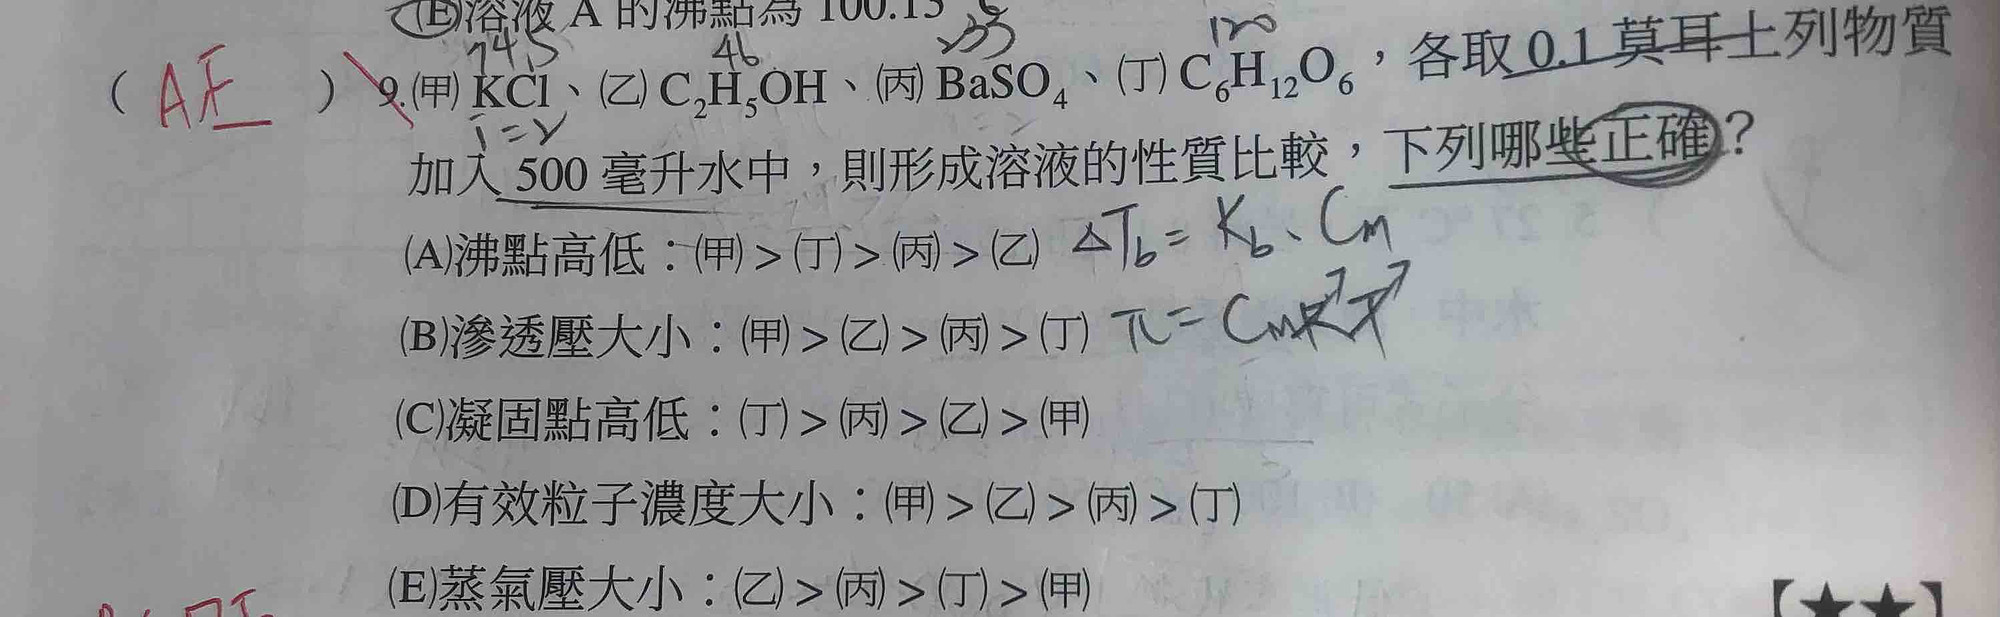 (E)溶液 A 的沸點為 100.13 ℃
74.5 46 233 180
( AE ) 9.(甲) KCl、(乙) C₂H₅OH、(丙) BaSO₄、(丁) C₆H₁₂O₆，各取 0.1 莫耳上列物質
i=2
加入 500 毫升水中，則形成溶液的性質比較，下列哪些正確？
(A)沸點高低：(甲)＞(丁)＞(丙)＞(乙) ΔTb = Kb、Cm
(B)滲透壓大小：(甲)＞(乙)＞(丙)＞(丁) π = CmRT
(C)凝固點高低：(丁)＞(丙)＞(乙)＞(甲)
(D)有效粒子濃度大小：(甲)＞(乙)＞(丙)＞(丁)
(E)蒸氣壓大小：(乙)＞(丙)＞(丁)＞(甲)
【★★】